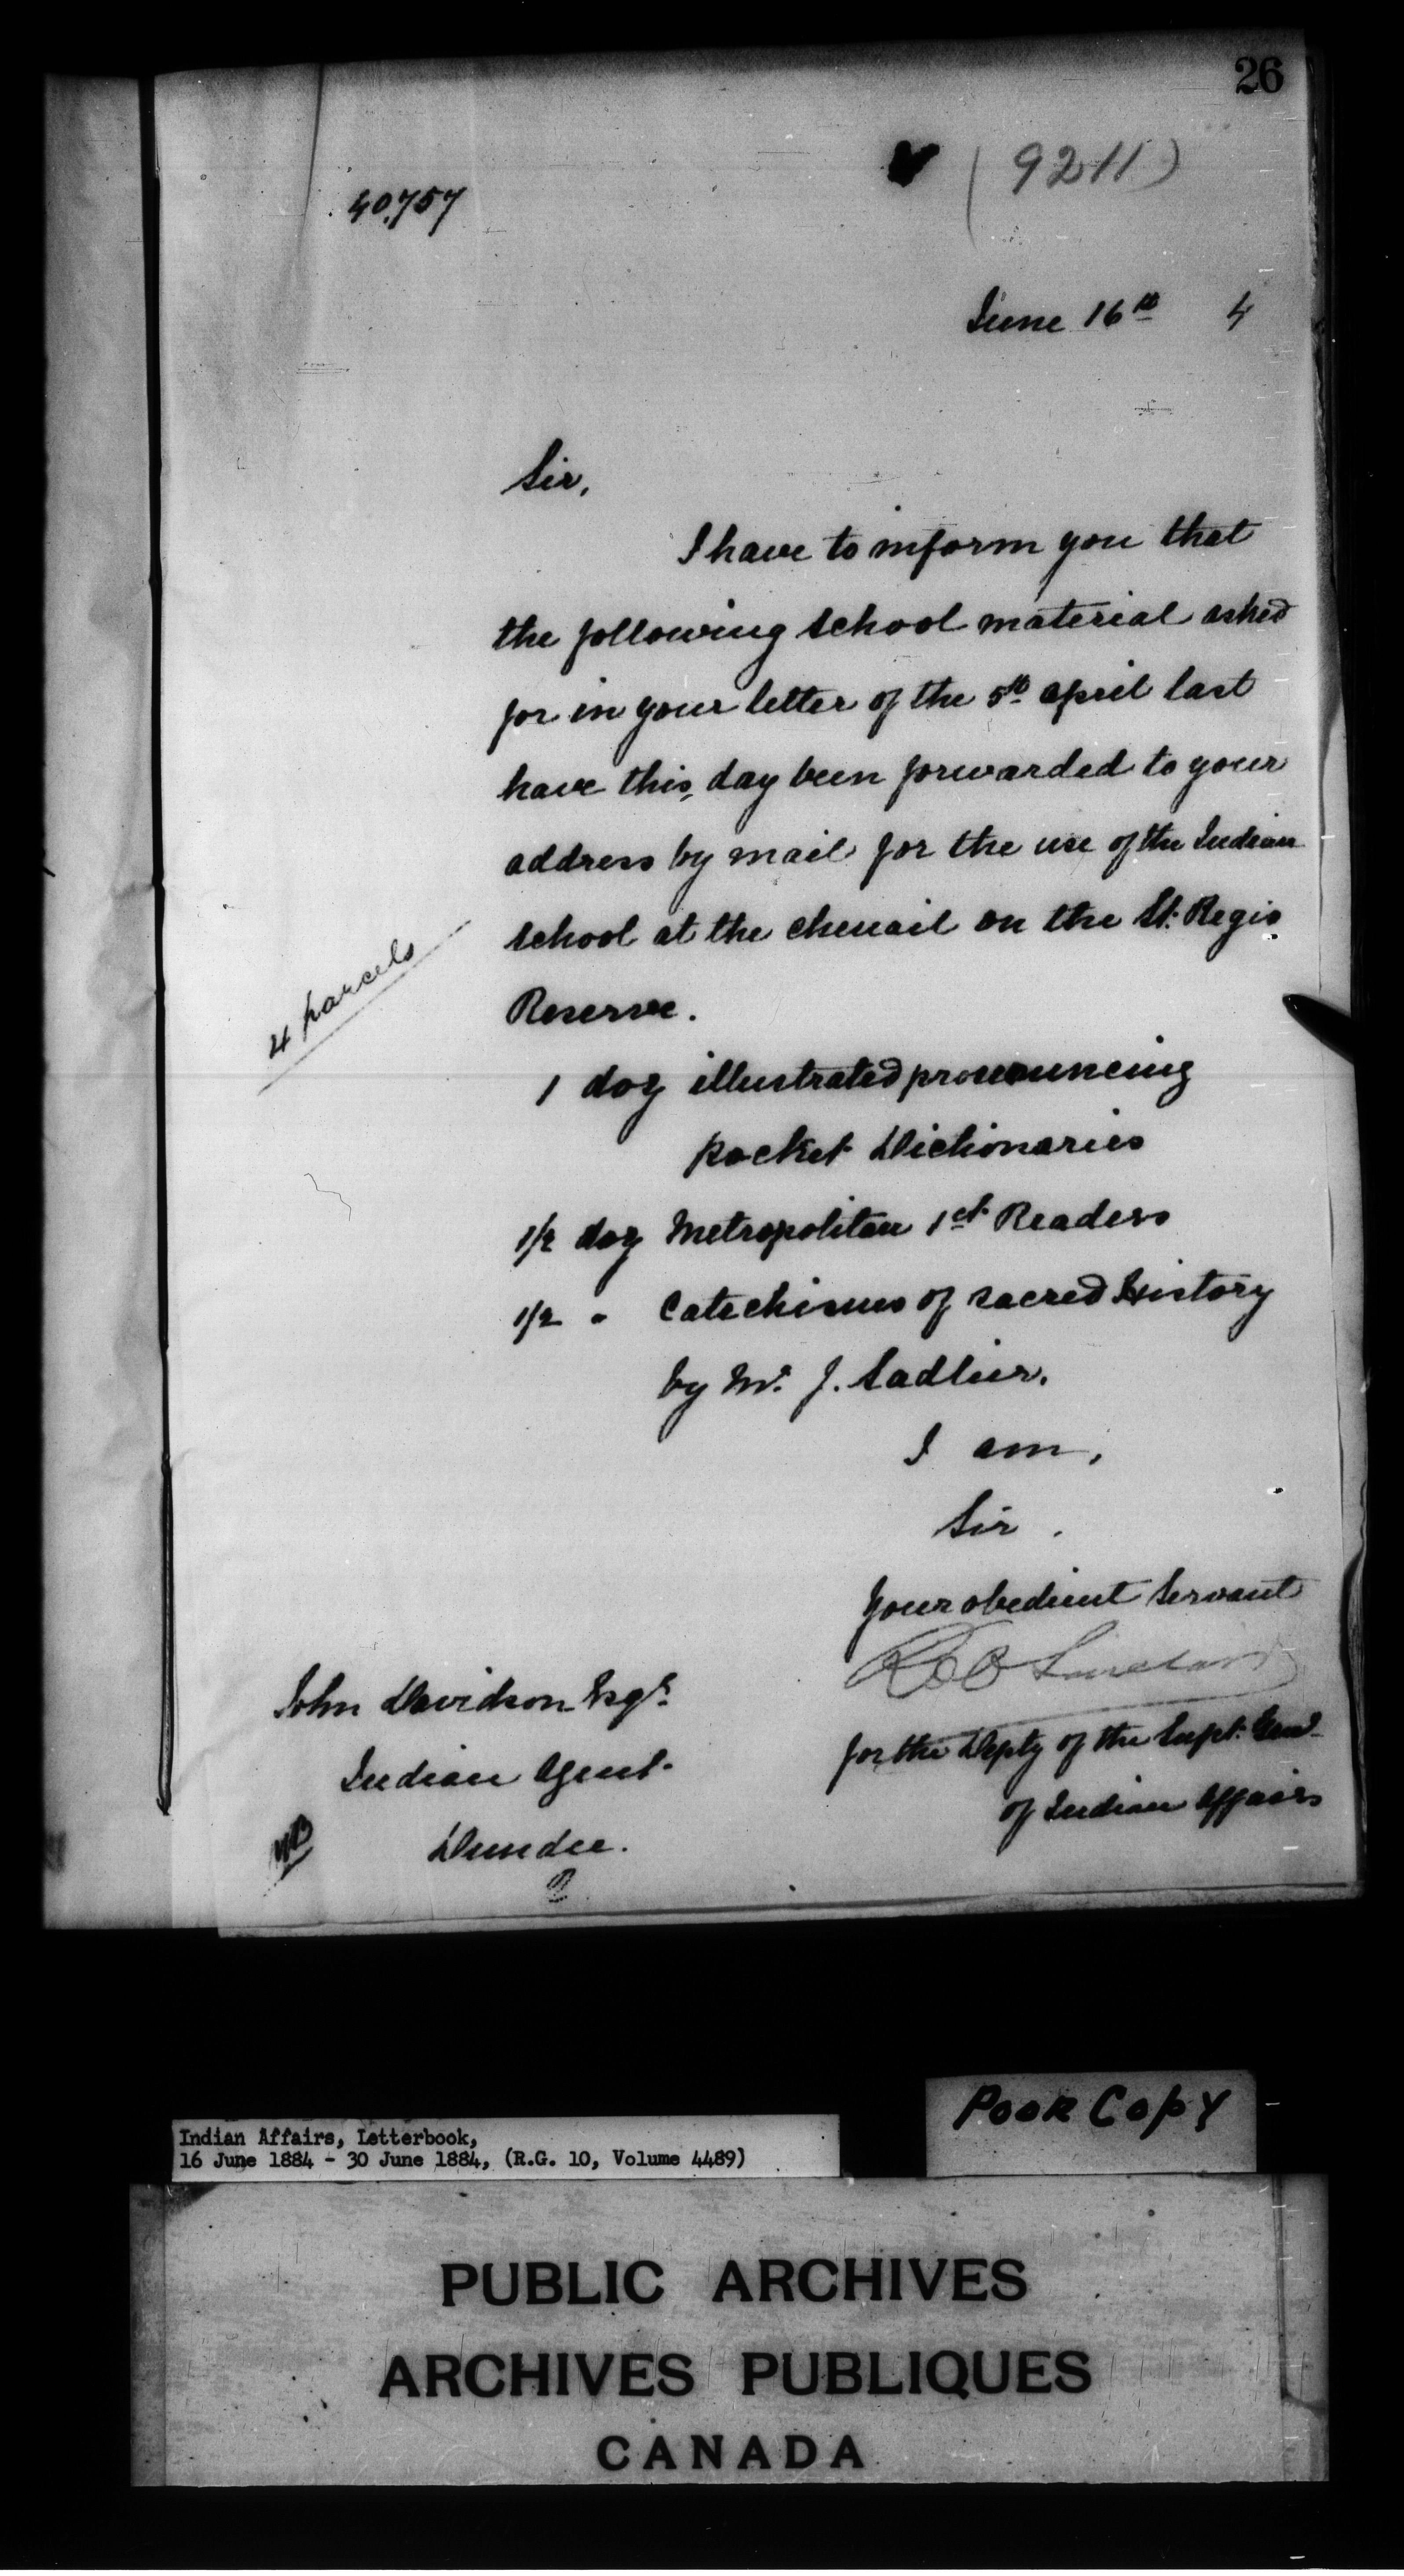 26
(9211)
40.757
June 16th 4
Sir,
I have to inform you that
the following school material asked
for in your letter of the 5th April last
have this day been forwarded to your
address by mail for the use of the Indian
school at the Chenail on the St. Regis
Reserve.
4 parcels
1 doz illustrated pronouncing
pocket Dictionaries
1/2 doz Metropolitan 1st Readers
1/2 " Catechisms of sacred History
by Mr. J. Sadlier.
I am,
Sir.
Your obedient Servant
Sinclair
for the Depty of the Supt. Genl
of Indian Affairs
John Davidson Esqr.
Indian Agent
Dundee.
Poor Copy
Indian Affairs, Letterbook,
16 June 1884 - 30 June 1884, (R.G. 10, Volume 4489)
PUBLIC ARCHIVES
ARCHIVES PUBLIQUES
CANADA